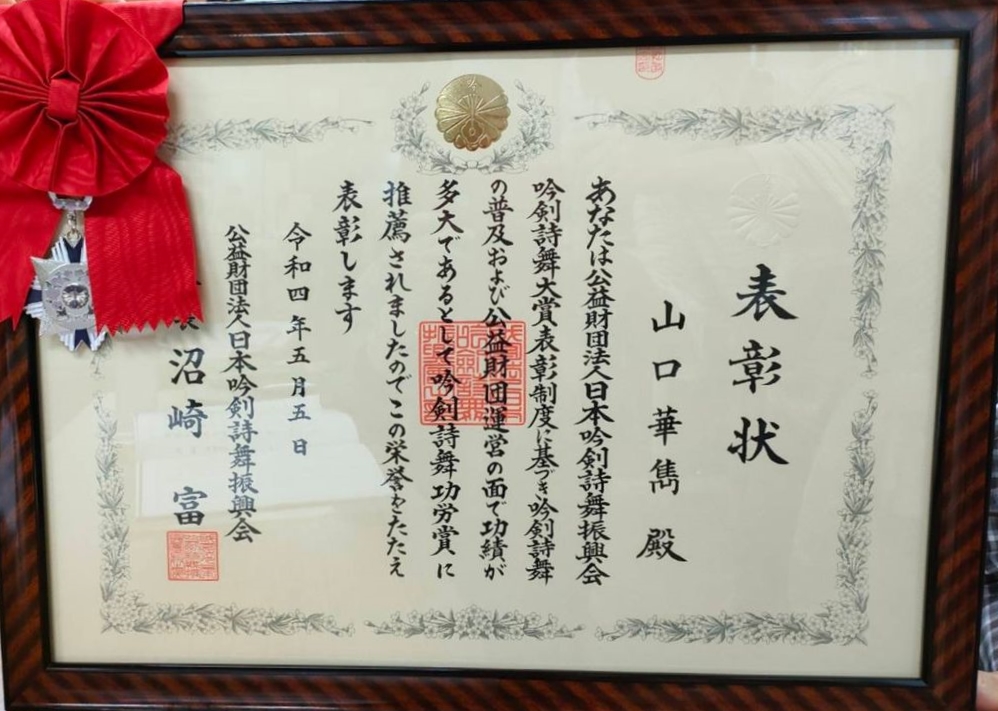 表彰状
山口華雋殿
あなたは公益財団法人日本吟剣詩舞振興会
吟剣詩舞大賞表彰制度に基づき吟剣詩舞
の普及および公益財団運営の面で功績が
多大であるとして吟剣詩舞功労賞に
推薦されましたのでこの栄誉をたたえ
表彰します
令和四年五月五日
公益財団法人日本吟剣詩舞振興会
長 沼崎 富